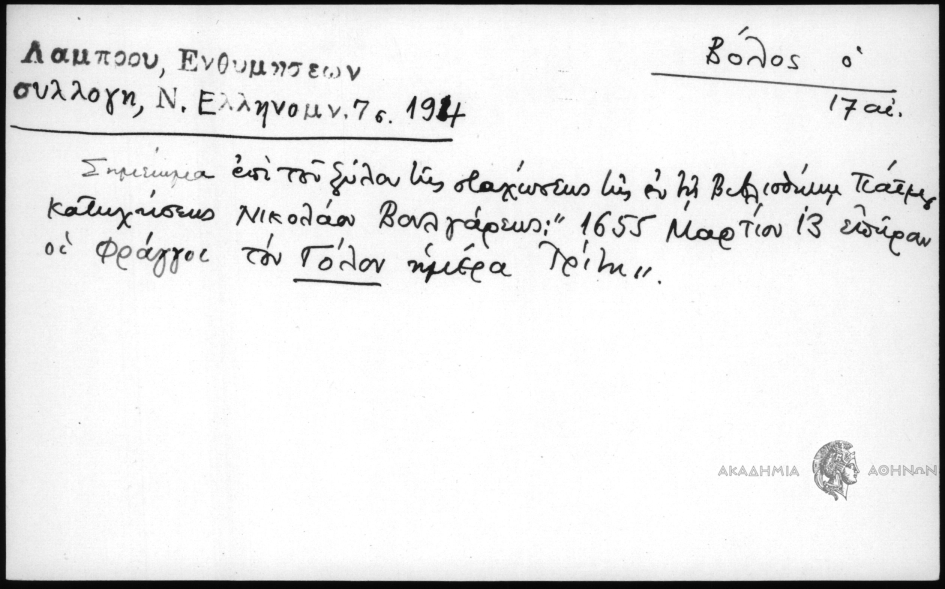 Λαμπρου, Ενθυμησεων
συλλογη, Ν. Ελληνομν. 7 σ. 194
Βόλος ὁ
17 αἰ.
Σημείωμα ἐπὶ τοῦ ξύλου τῆς σταχώσεως τῆς ἐν τῇ Βιβλιοθήκῃ
κατηχήσεως Νικολάου Βουλγάρεως: " 1655 Μαρτίου 13 ἐπῆραν
οἱ Φράγγοι τὸν Γόλον ἡμέρα Τρίτη".
ΑΚΑΔΗΜΙΑ ΑΘΗΝΩΝ